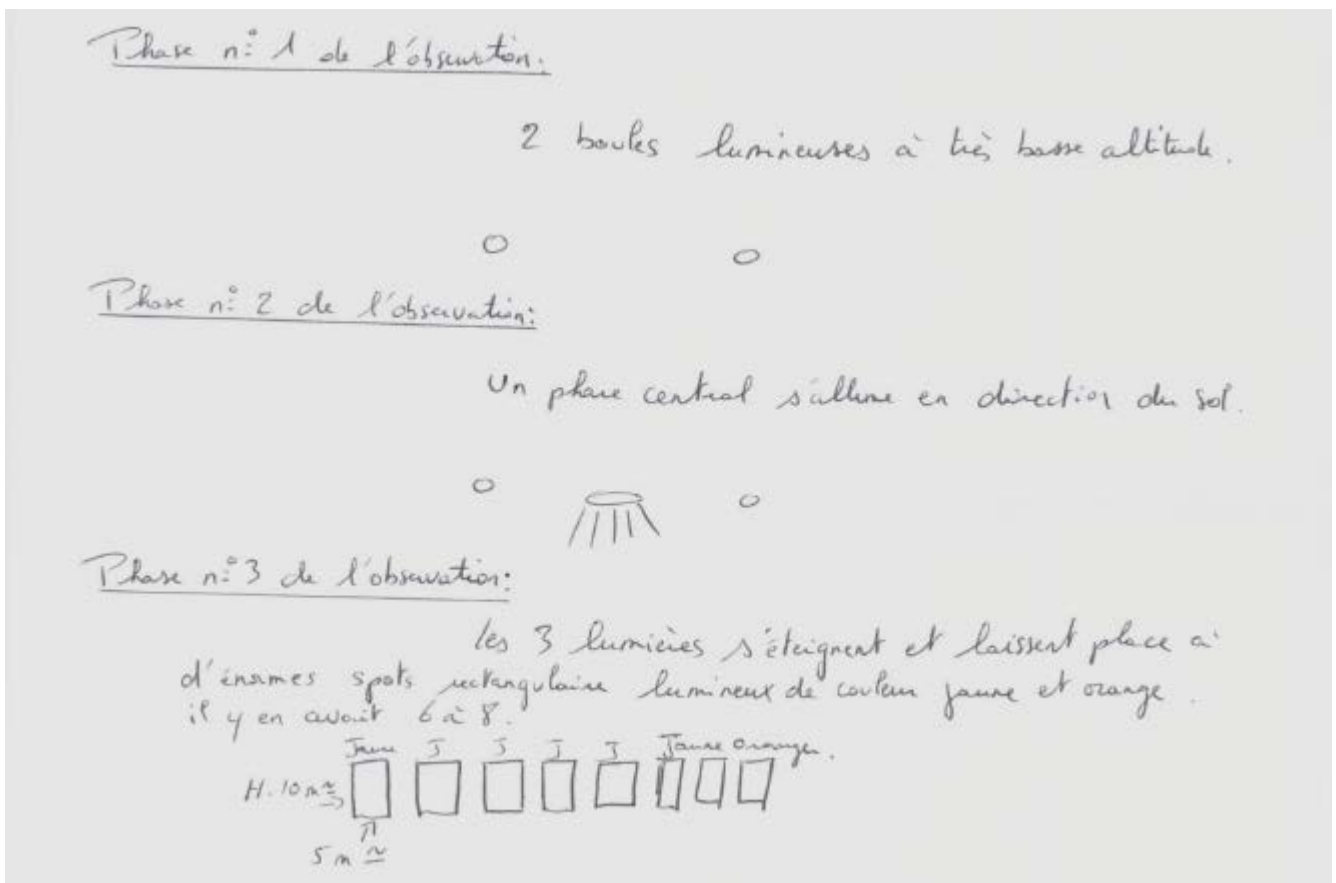 Phase n° 1 de l'observation:
2 boules lumineuses à très basse altitude.
Phase n° 2 de l'observation:
Un phare central s'allume en direction du sol.
Phase n° 3 de l'observation:
les 3 lumières s'éteignent et laissent place à
d'énormes spots rectangulaire lumineux de couleur jaune et orange.
il y en avait 6 à 8.
Jaune J J J J Jaune Oranger.
H. 10 m ≃
5 m ≃